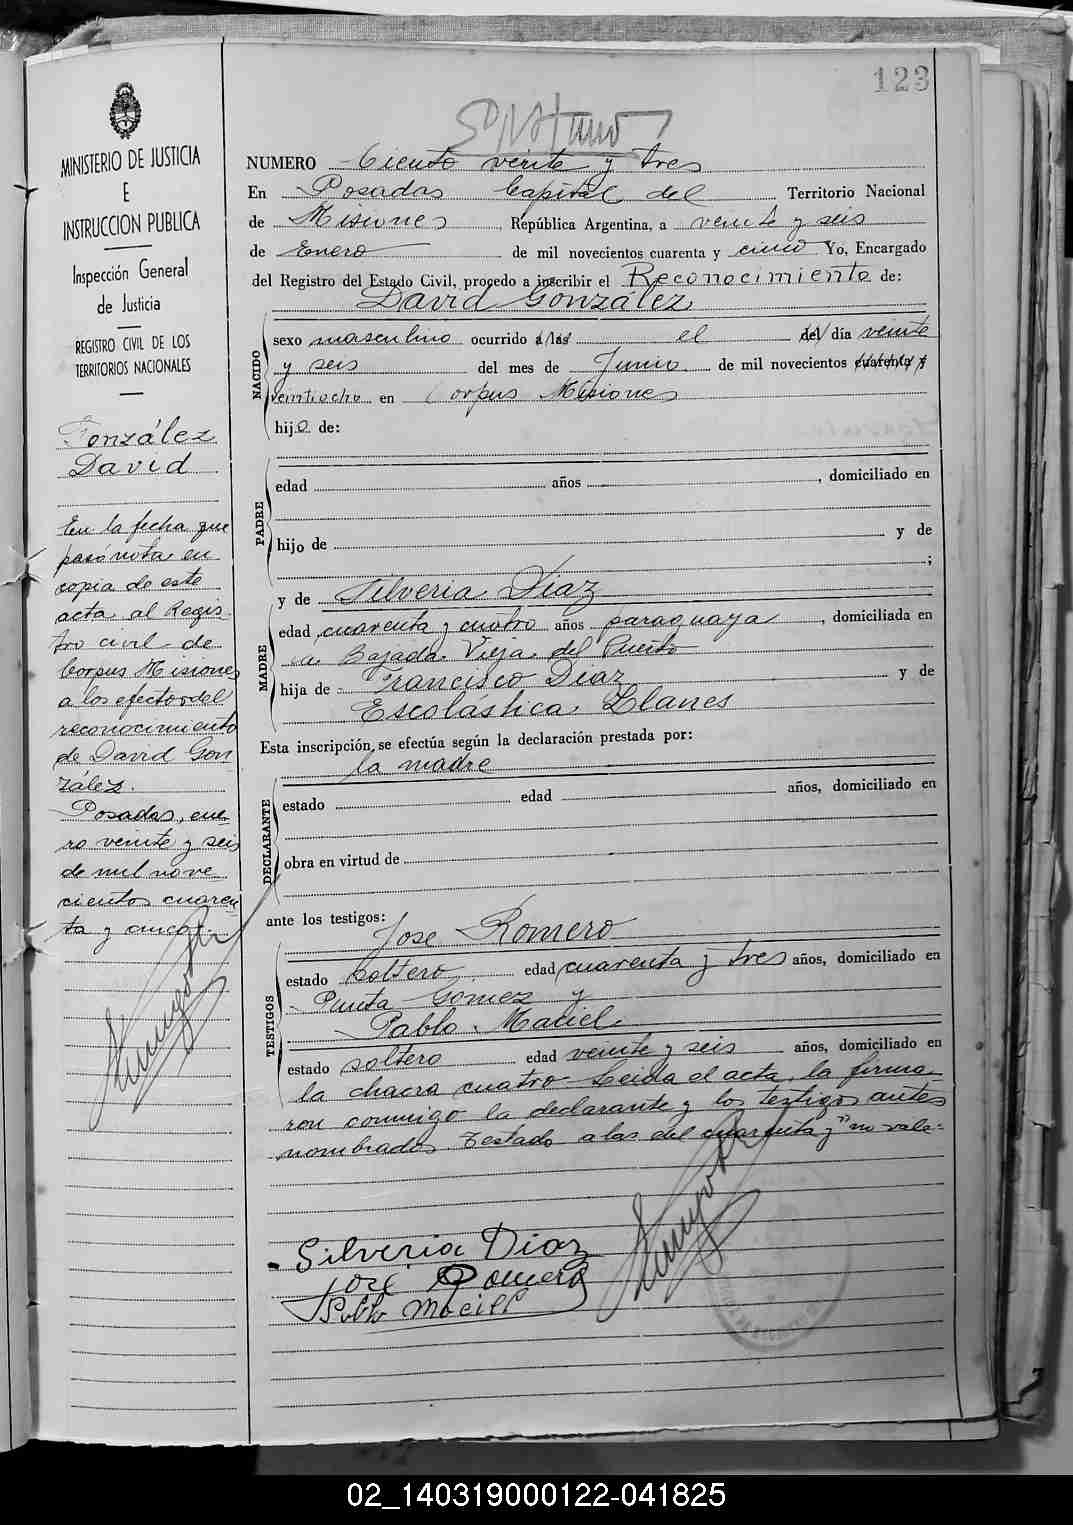 123
MINISTERIO DE JUSTICIA
E
INSTRUCCION PUBLICA
Inspección General
de Justicia
REGISTRO CIVIL DE LOS
TERRITORIOS NACIONALES
González
David
En la fecha que
pasó nota en
copia de este
acta al Regis-
tro civil de
Corpus Misiones
a los efectos del
reconocimiento
de David Gon
zález.
Posadas, ene-
ro veinte y seis
de mil nove
cientos cuaren
ta y cinco.-
NUMERO Ciento veinte y tres
En Posadas Capital del Territorio Nacional
de Misiones, República Argentina, a veinte y seis
de Enero de mil novecientos cuarenta y cinco Yo, Encargado
del Registro del Estado Civil, procedo a inscribir el Reconocimiento de:
David González
NACIDO
sexo masculino ocurrido a las el del día veinte
y seis del mes de Junio de mil novecientos cuarenta y
veintiocho en Corpus Misiones
hijo de:
PADRE
edad años , domiciliado en
hijo de y de
;
y de Silveria Diaz
MADRE
edad cuarenta y cuatro años paraguaya , domiciliada en
a Bajada Vieja del Puerto
hija de - Francisco Diaz y de
Escolástica Llanes
Esta inscripción se efectúa según la declaración prestada por:
la madre
DECLARANTE
estado edad años, domiciliado en
obra en virtud de
ante los testigos:
Jose Romero
TESTIGOS
estado soltero edad cuarenta y tres años, domiciliado en
- Punta Gómez y
Pablo Maciel
estado soltero edad veinte y seis años, domiciliado en
la chacra cuatro - Leida el acta, la firma-
ron conmigo la declarante y los testigos antes
nombrados. Testado a las del cuarenta y" no vale.-
Silveria Diaz
José Romero
Pablo Maciell
02_140319000122-041825